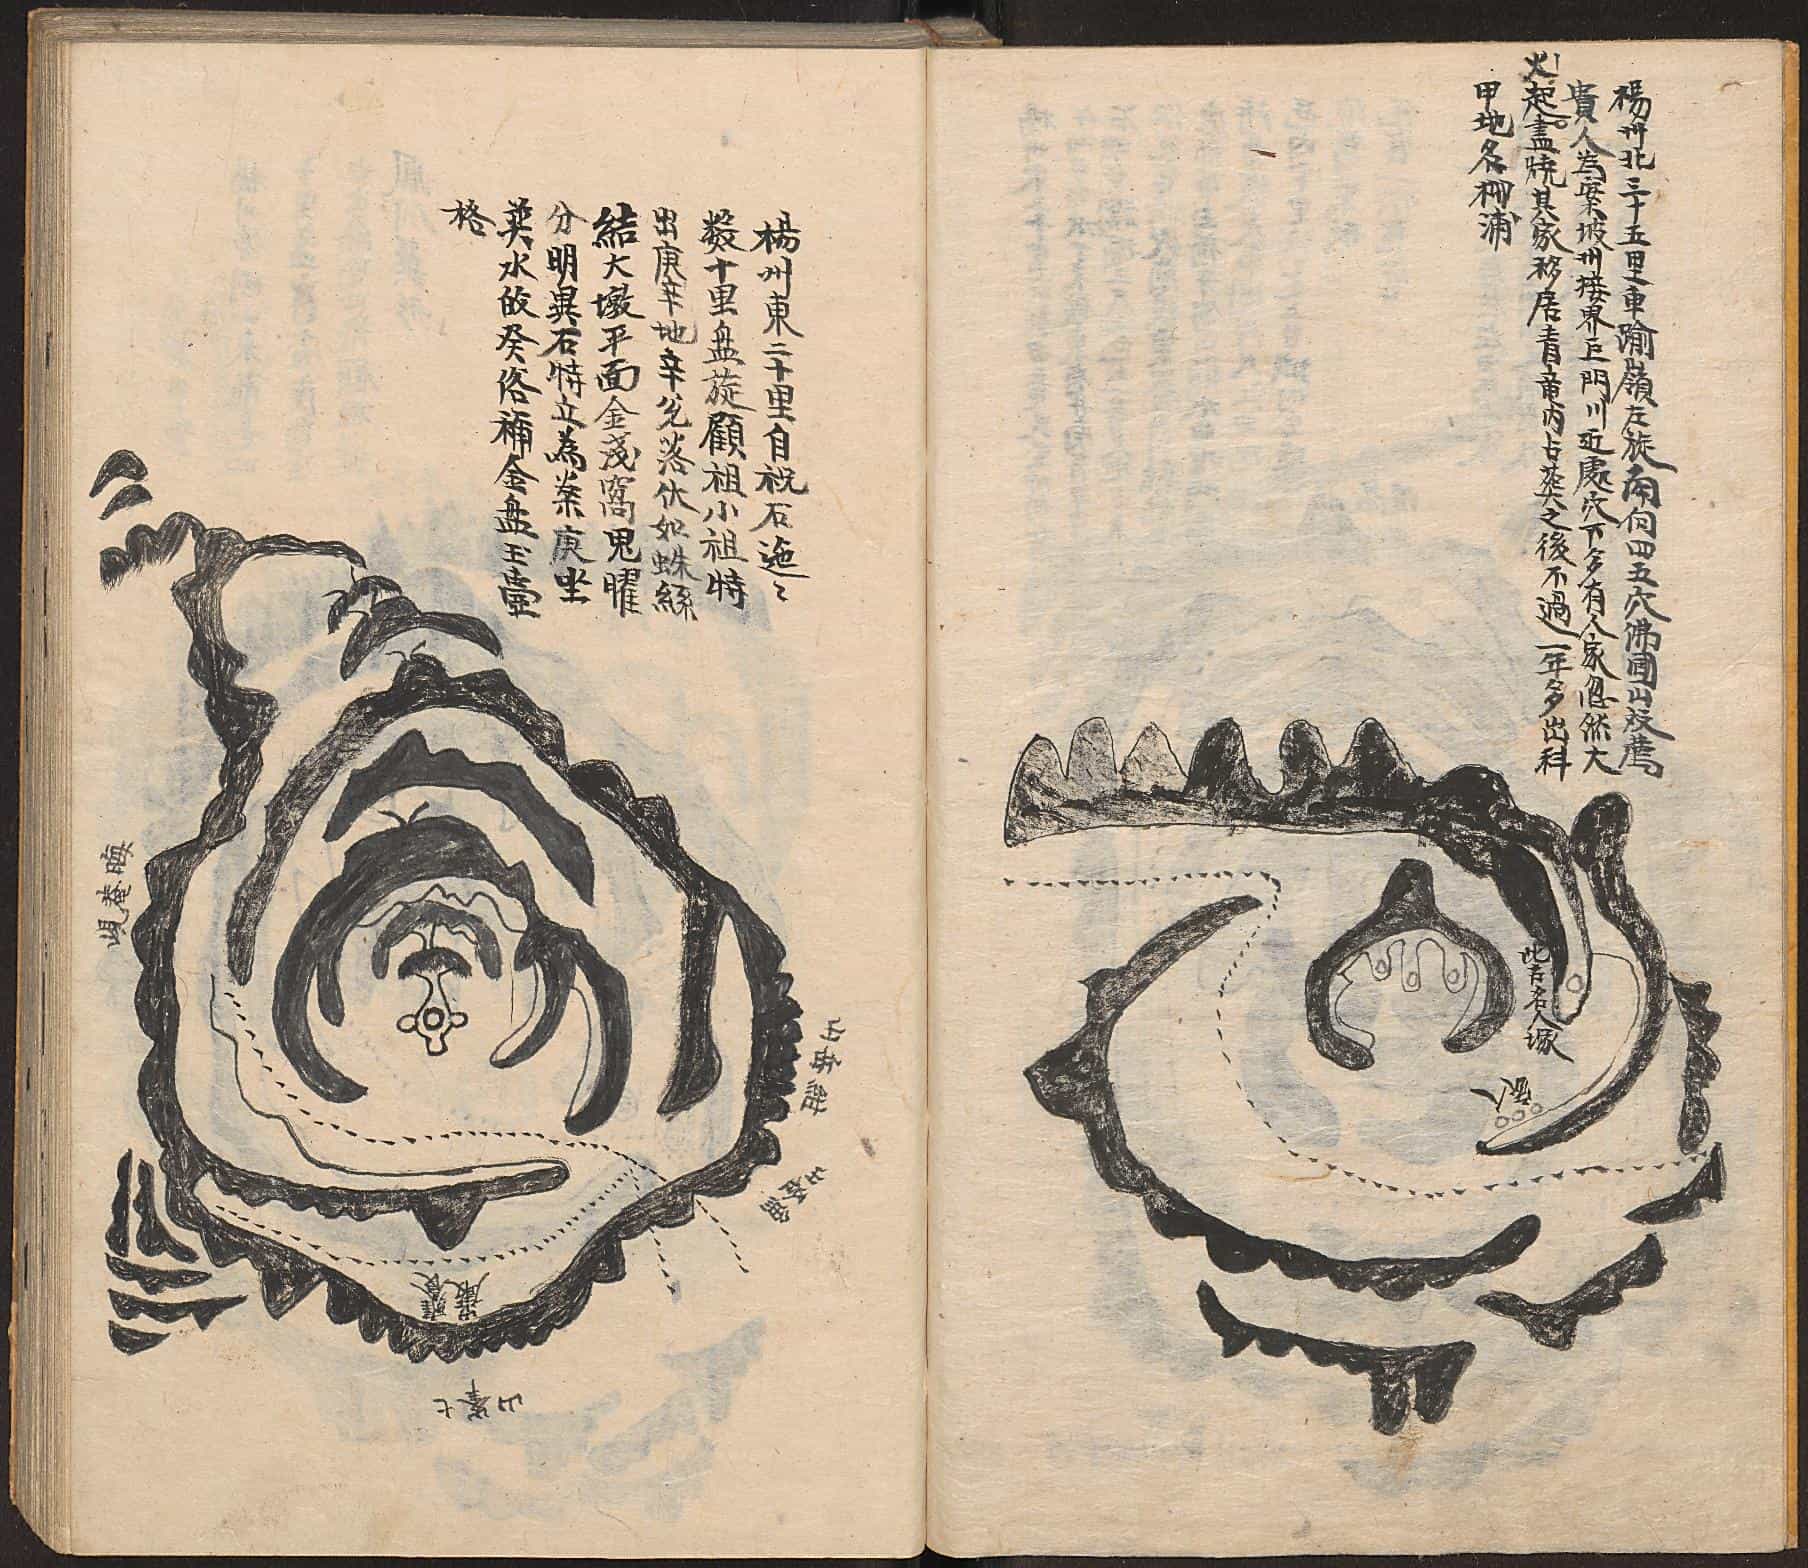 楊州北三十五里車踰嶺左旋南向四五穴佛國山發鷹
貴人為案坡州接界巨門川近處穴下多有人家忽然大
火起盡燒其家移居青竜內占葬之後不過一年多出科
甲地名栁浦
此吉名人塚
人
楊州東二十里自祝石迤〻
数十里盘旋顧祖小祖特
出庚辛地辛兌落伏如蛛絲
結大墩平面金淺窩鬼曜
分明異石特立為案庚坐
巽水㱕癸俗稱金盘玉壺
格
晦菴峴
山峯七